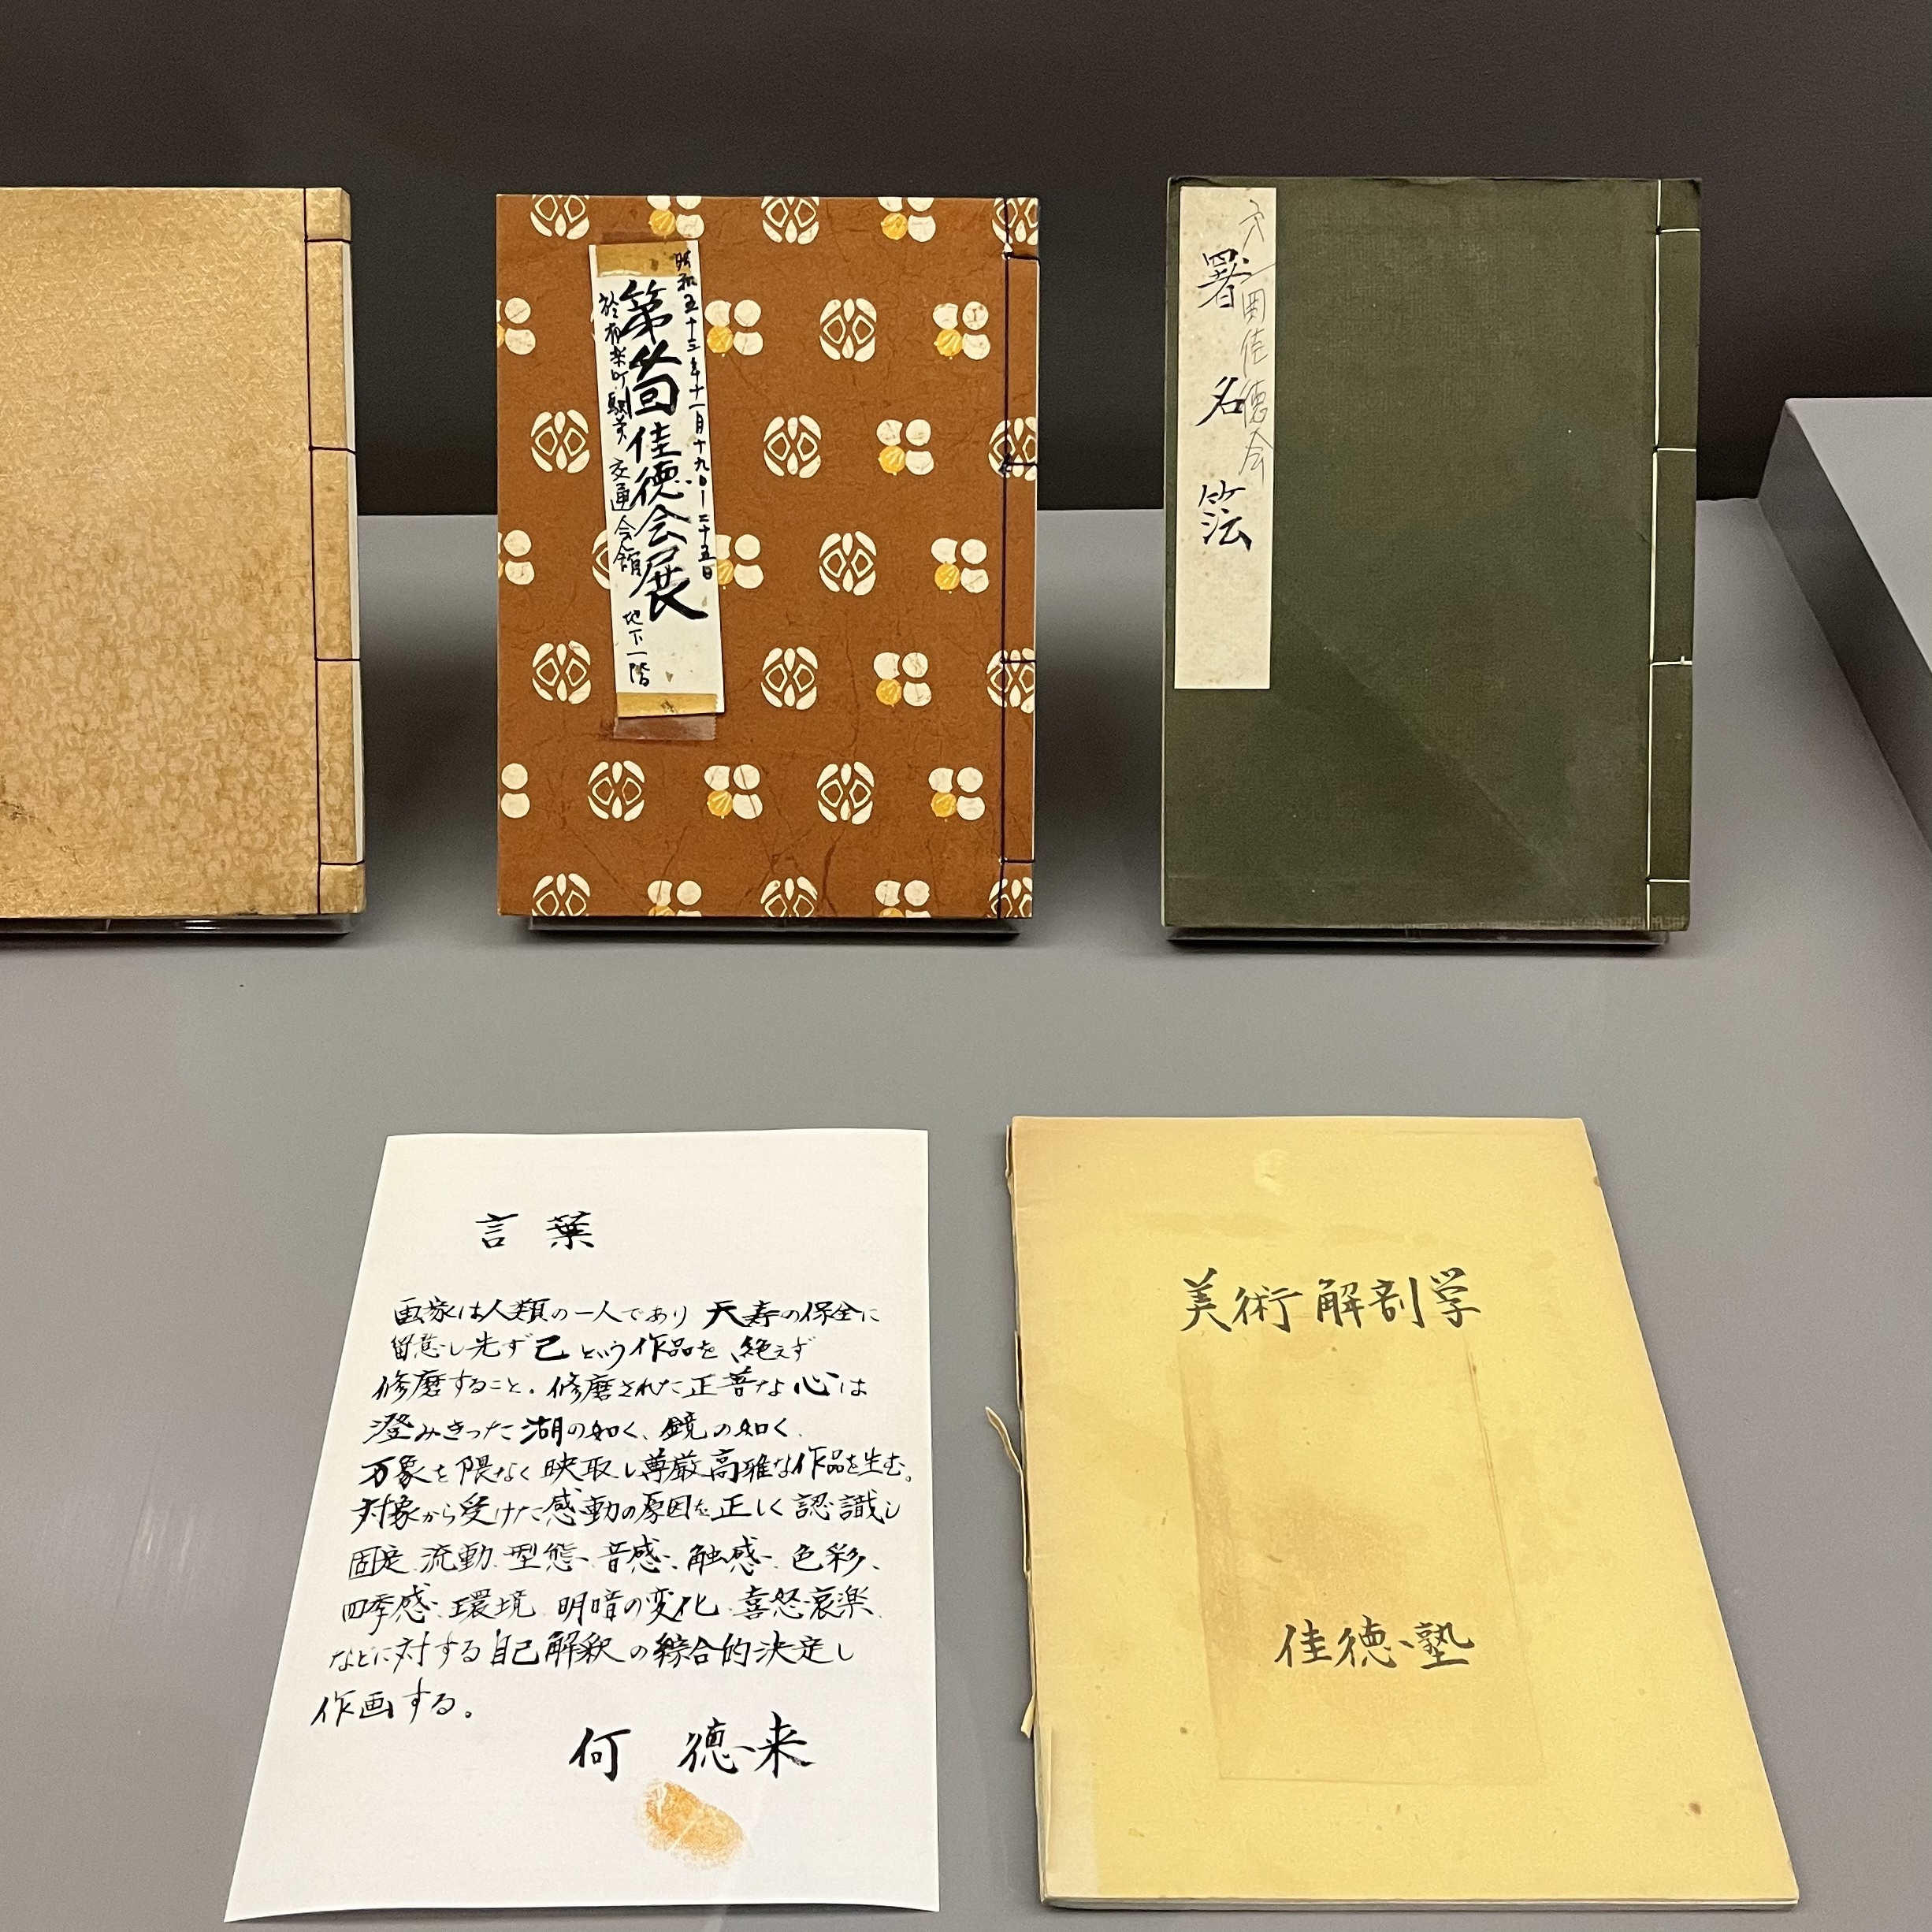 昭和五十三年十一月十九日ー二十五日
佳徳会展
於有楽町駅前 交通会館 地下一階
署名簿
佳徳会
言葉
画家は人類の一人であり 天寿の保全に
留意し先ず己という作品を、絶えず
修磨すること。修磨された正善な心は
澄みきった湖の如く、鏡の如く、
万象を隈なく映取し尊厳高雅な作品を生む。
対象から受けた感動の原因を正しく認識し
固定、流動、型態、音感、触感、色彩、
四季感、環境、明暗の変化、喜怒哀楽、
などに対する自己解釈の綜合的決定し
作画する。
何 徳来
美術解剖学
佳徳塾